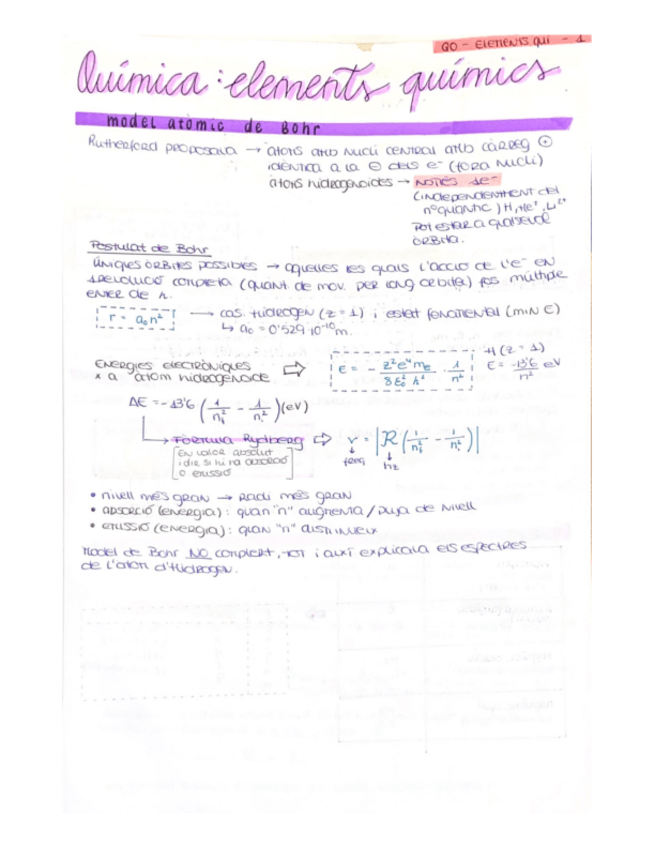 QO - ELEMENTS QUI - 1
Química: elements químics
model atòmic de Bohr
Rutherford PROPOSAVA → àtoms amb nucli central amb càrreg ⊕
idèntica a la ⊖ dels e⁻ (fora nucli)
àtoms hidrogenoides → NOMÉS 1e⁻
(independentment del
nºquàntic) H, He⁺, Li²⁺
Pot estar a qualsevol
òrbita.
Postulat de Bohr
úniques òrbites possibles → aquelles les quals l'acció de l'e⁻ en
1 revolució completa (quant. de mov. per long orbita) fos múltiple
enter de h.
r = a₀n² → cas hidrogen (z=1) i estat fonamental (min E)
↳ a₀ = 0'529·10⁻¹⁰m.
ENERGIES ELECTRÒNIQUES
x a àtom hidrogenoide ⇨ E = - z²e⁴mₑ / 8ε₀²h² · 1/n²
H (z=1)
E = -13'6/n² eV
ΔE = -13'6 (1/n²f - 1/n²i) (eV)
↳ Fórmula Rydberg ⇨ ν = |R (1/n²f - 1/n²i)|
[EN valor absolut
i dir si hi ha absorció
o emissió]
freq
hz
• nivell més gran → Radi més gran
• absorció (energia): quan "n" augmenta / puja de nivell
• emissió (energia): quan "n" disminueix
Model de Bohr NO complert, tot i així explicava els espectres
de l'àtom d'Hidrogen.